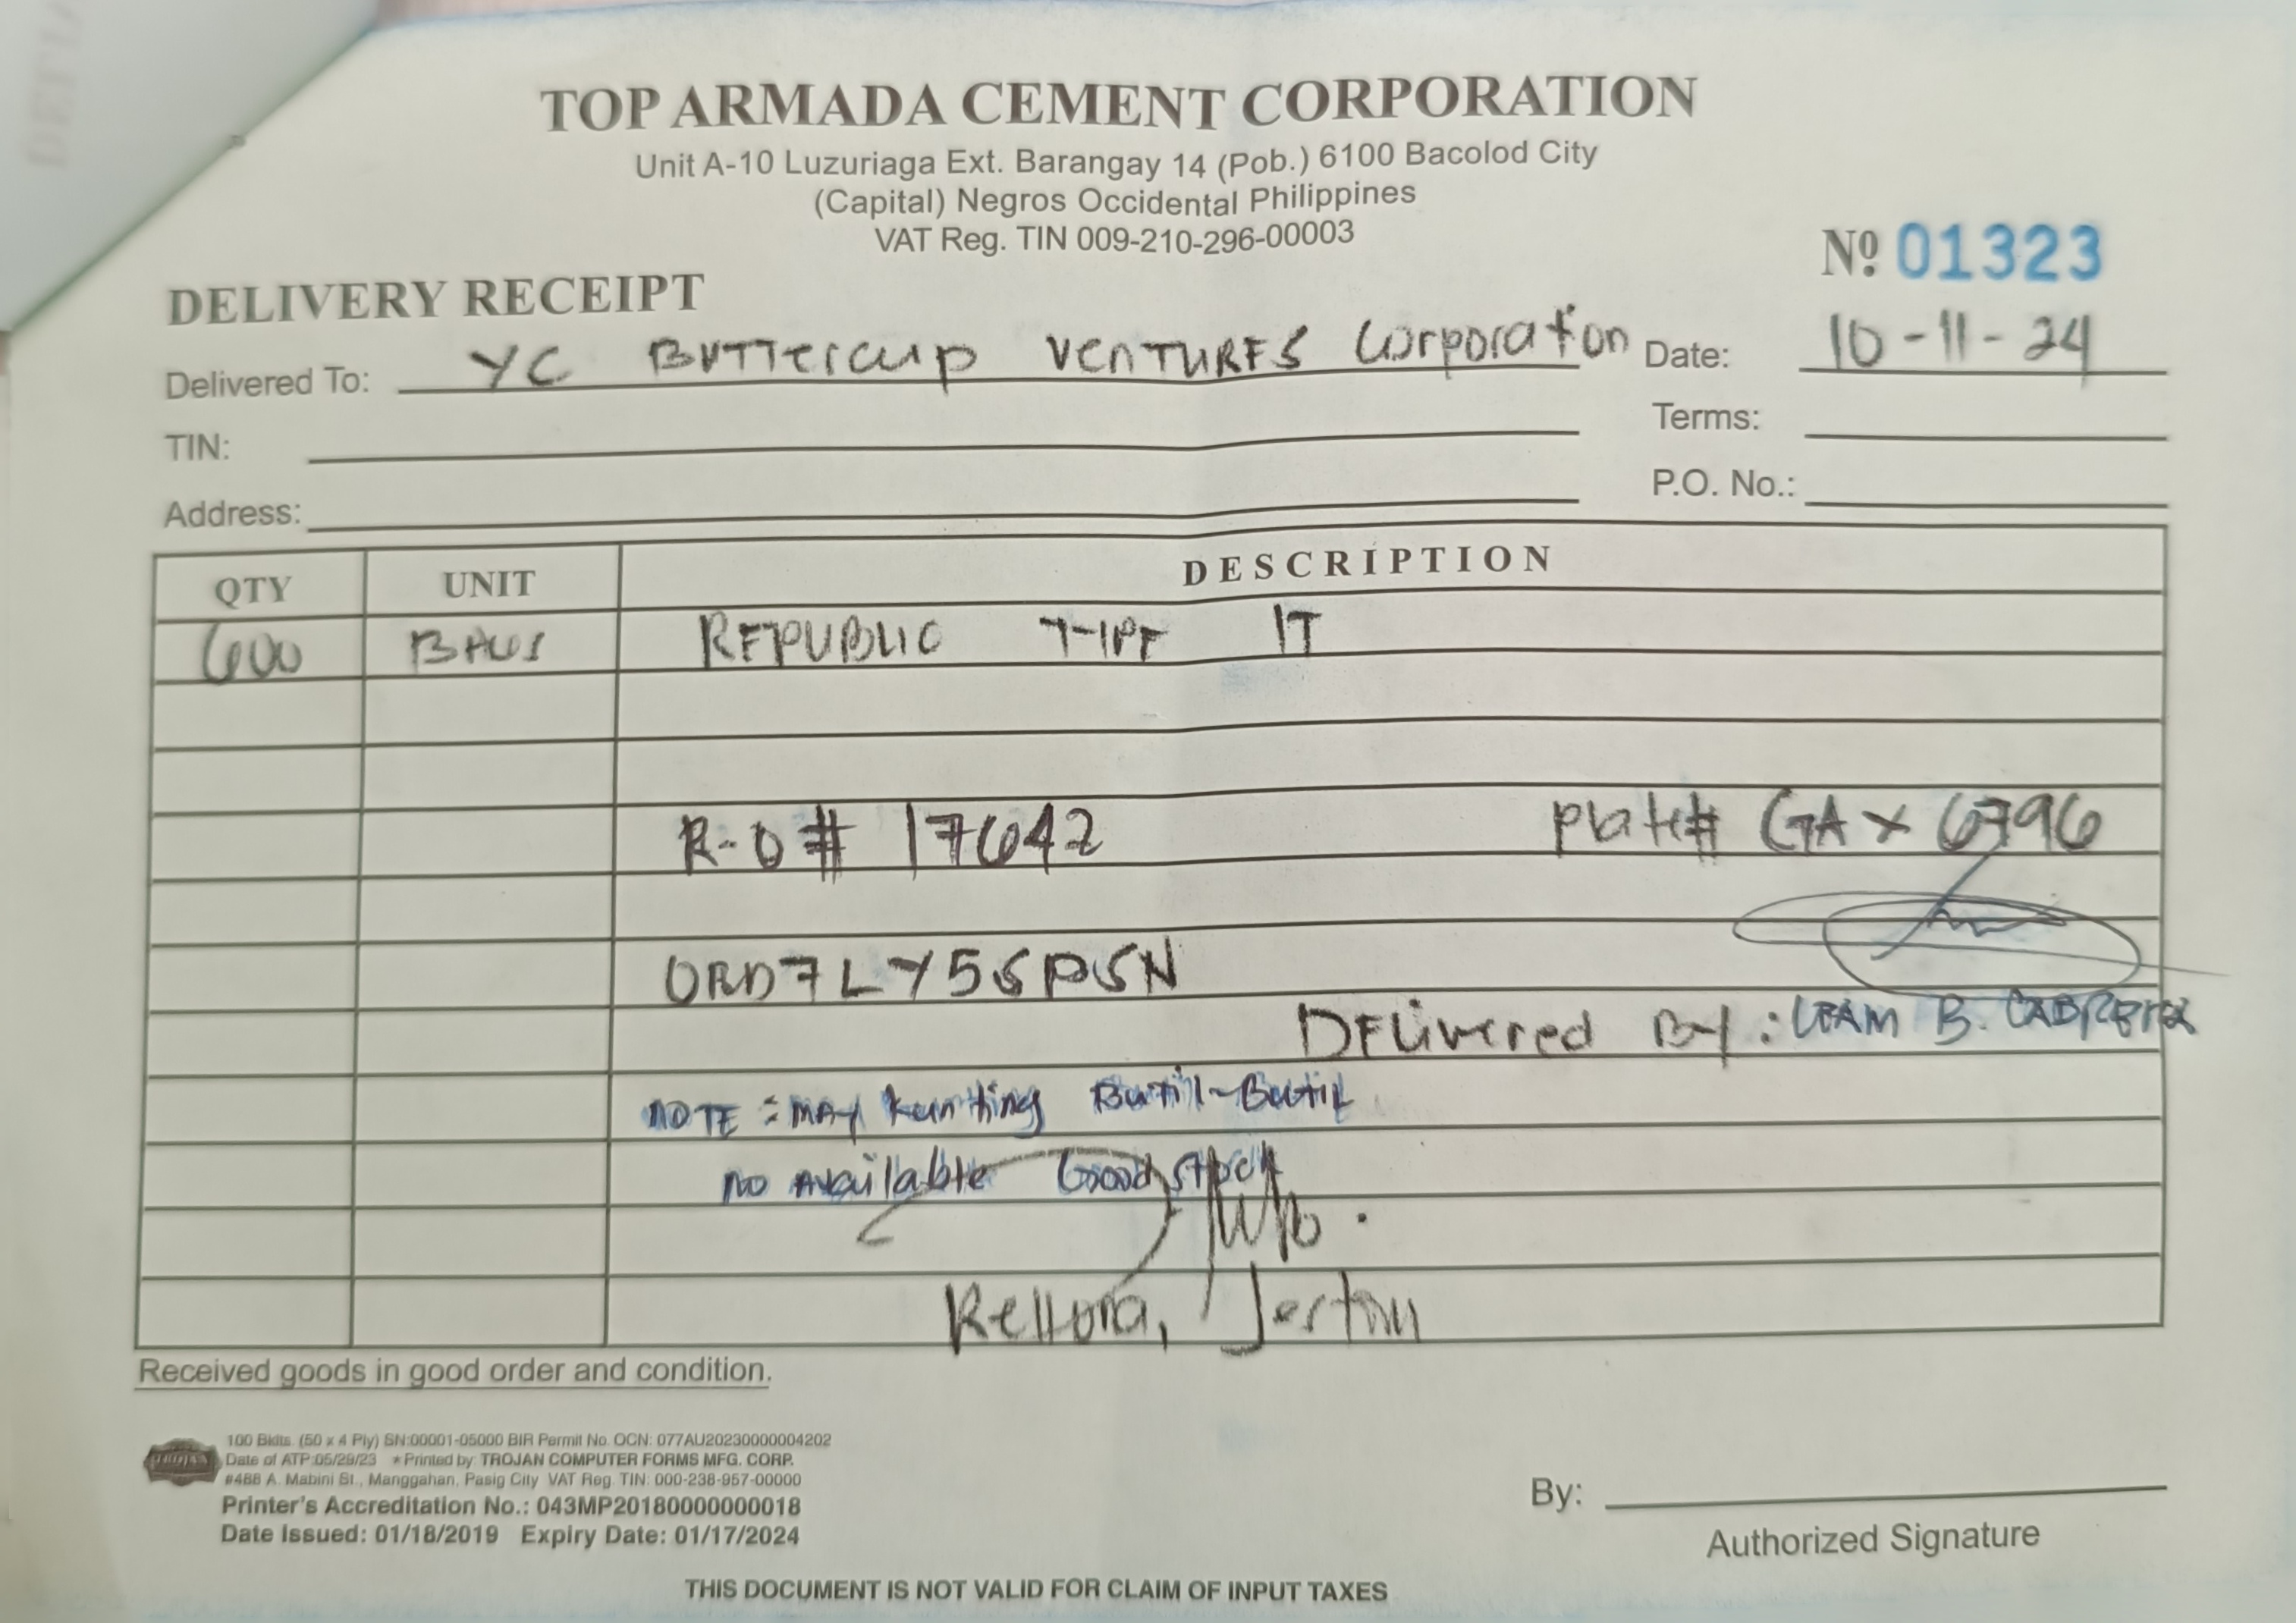 TOP ARMADA CEMENT CORPORATION
Unit A-10 Luzuriaga Ext. Barangay 14 (Pob.) 6100 Bacolod City
(Capital) Negros Occidental Philippines
VAT Reg. TIN 009-210-296-00003
Nº 01323
DELIVERY RECEIPT
Delivered To: YC BUTTERCUP VENTURES Corporation Date: 10-11-24
TIN: Terms:
Address: P.O. No.:
QTY UNIT DESCRIPTION
600 BAGS REPUBLIC TYPE 1T
R-O# 17642 Plate# GAX 6796
ORD7LY5SPSN
Delivered By: B. CABRERA
NOTE: MAY Kunting Butil-Butil
no available Good stock
Rellora,
Received goods in good order and condition.
100 Bklts. (50 x 4 Ply) SN:00001-05000 BIR Permit No. OCN: 077AU20230000004202
Date of ATP:05/29/23 *Printed by: TROJAN COMPUTER FORMS MFG. CORP.
#488 A. Mabini St., Manggahan, Pasig City VAT Reg. TIN: 000-238-957-00000
Printer's Accreditation No.: 043MP20180000000018
Date Issued: 01/18/2019 Expiry Date: 01/17/2024
By:
Authorized Signature
THIS DOCUMENT IS NOT VALID FOR CLAIM OF INPUT TAXES